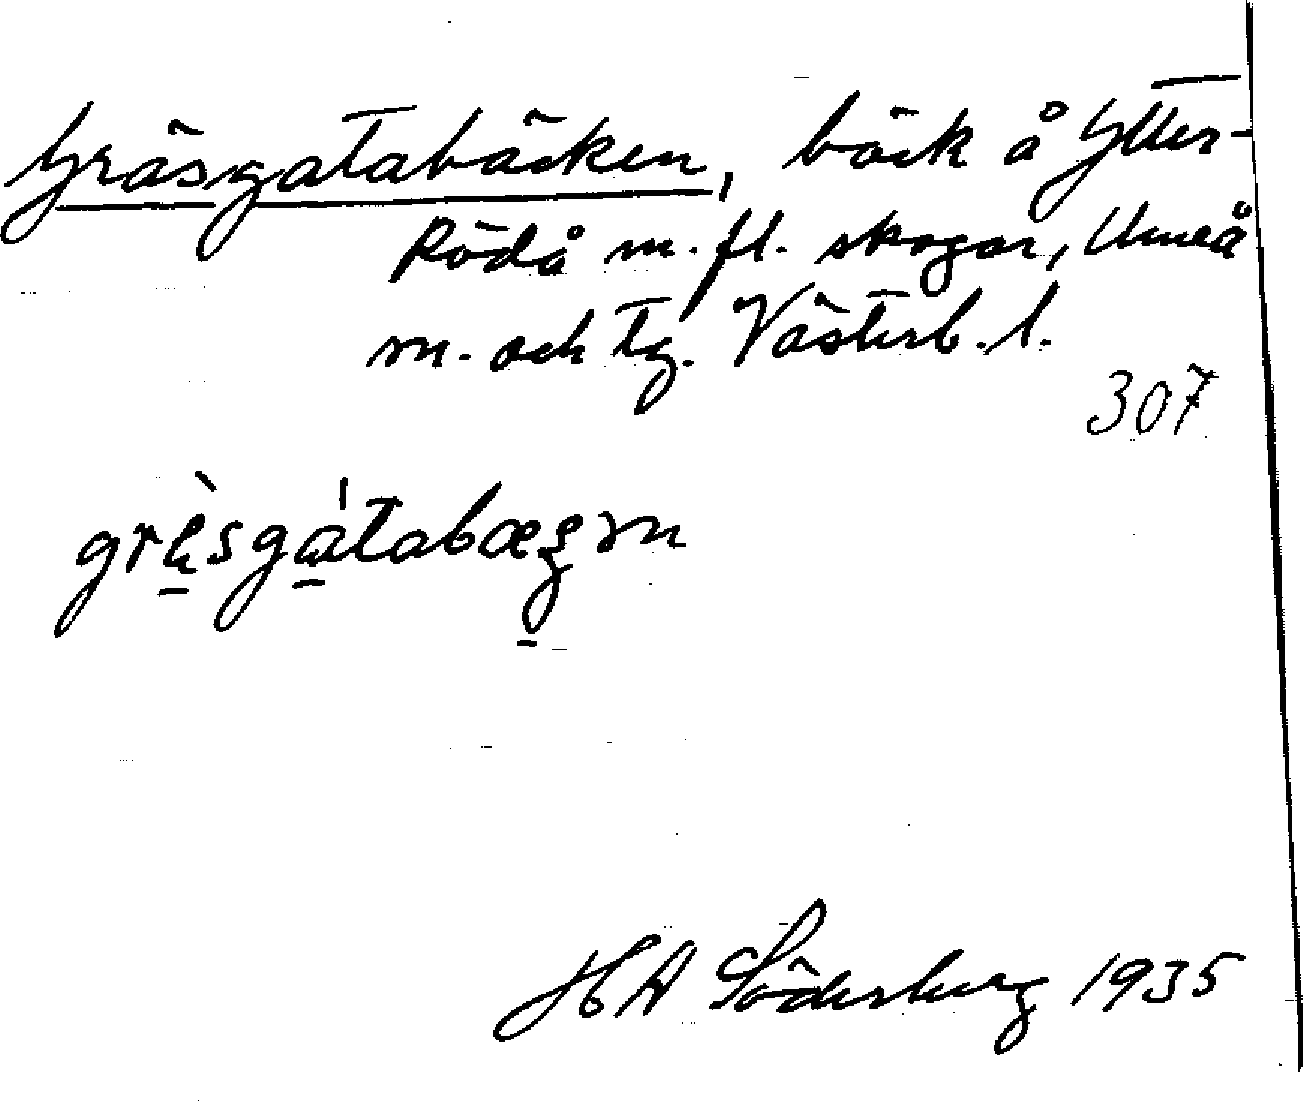 Gräsgatabäcken, bäck å Ytter-
Rödå m. fl. skogar, Umeå
sn. och tg. Västerb. l.
307
HA Söderberg 1935